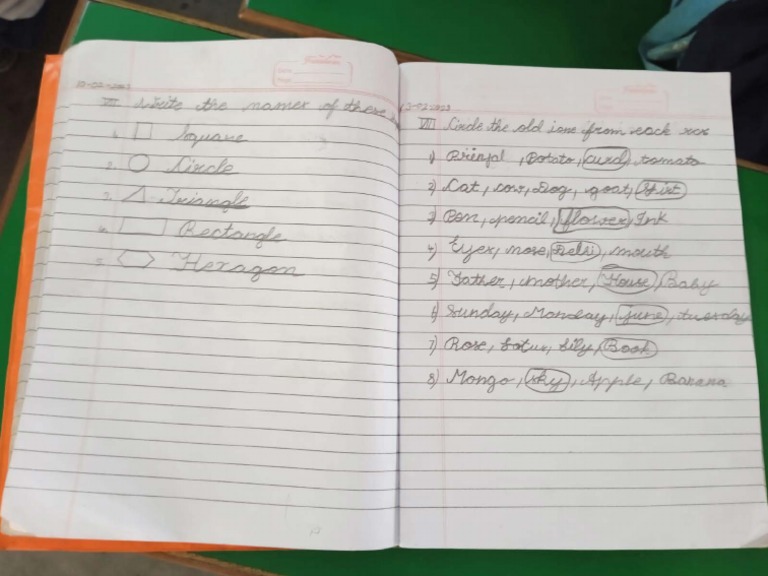 10-02-2023
VII Write the names of these
1. Square
2. Circle
3. Triangle
4. Rectangle
5. Hexagon
13-02-2023
VIII Circle the old one from each row
1) Brinjal, Potato, curd, tomato
2) Cat, cow, Dog, goat, Shirt
3) Pen, pencil, flower, Ink
4) Eyes, nose, Delhi, mouth
5) Father, mother, House, Baby
6) Sunday, Monday, june, tuesday
7) Rose, Lotus, Lily, Book
8) Mongo, sky, Apple, Banana